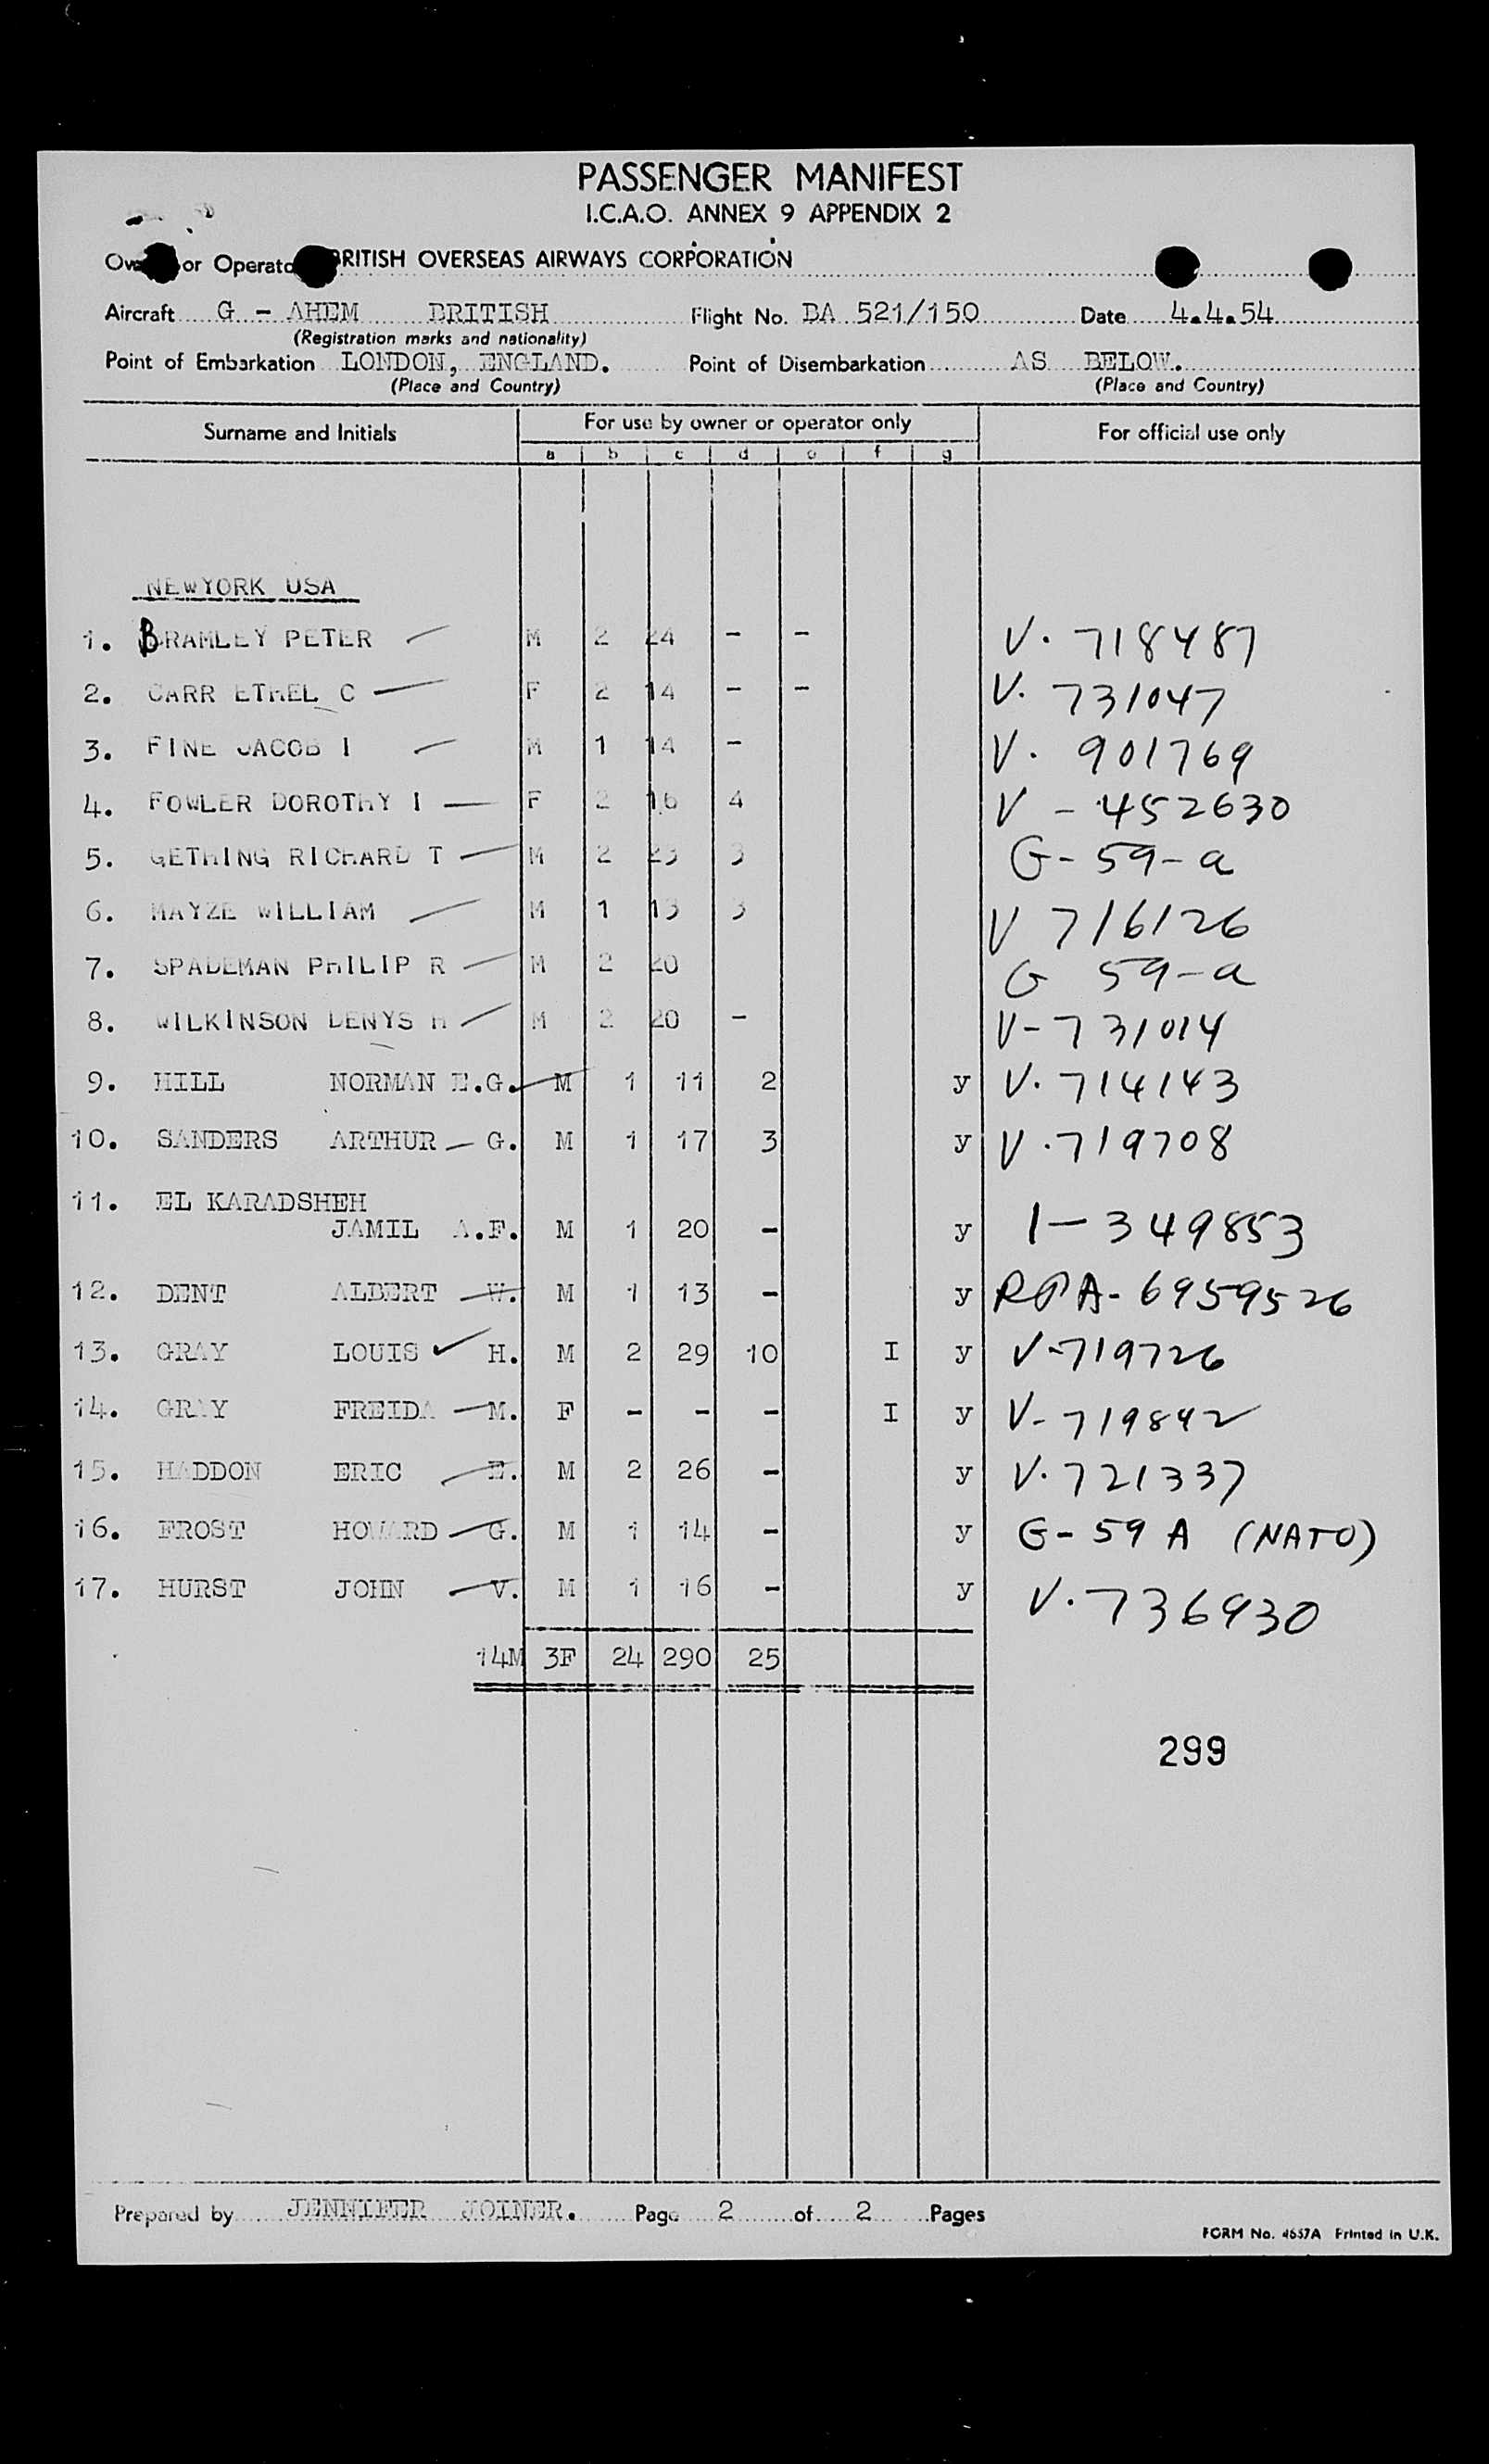 PASSENGER MANIFEST
I.C.A.O. ANNEX 9 APPENDIX 2
or Operato BRITISH OVERSEAS AIRWAYS CORPORATION
Aircraft G - AHEM BRITISH Flight No. BA 521/150 Date 4.4.54
(Registration marks and nationality)
Point of Embarkation LONDON, ENGLAND. Point of Disembarkation AS BELOW.
(Place and Country) (Place and Country)
Surname and Initials For use by owner or operator only For official use only
a b c d e f g
NEWYORK USA
1. BRAMLEY PETER M 2 24 - - V. 718487
2. CARR ETHEL C F 2 14 - - V. 731047
3. FINE JACOB I M 1 14 - V. 901769
4. FOWLER DOROTHY I F 2 16 4 V - 452630
5. GETHING RICHARD T M 2 23 3 G - 59 - a
6. MAYZE WILLIAM M 1 13 3 V 716126
7. SPADEMAN PHILIP R M 2 20 G 59 - a
8. WILKINSON DENYS H M 2 20 - V - 731014
9. HILL NORMAN E.G. M 1 11 2 y V. 714143
10. SANDERS ARTHUR G. M 1 17 3 y V. 719708
11. EL KARADSHEH
JAMIL A.F. M 1 20 - y 1 - 349853
12. DENT ALBERT W. M 1 13 - y RPA - 6959526
13. GRAY LOUIS H. M 2 29 10 I y V - 719726
14. GRAY FREIDA M. F - - - I y V - 719842
15. HADDON ERIC E. M 2 26 - y V. 721337
16. FROST HOWARD G. M 1 14 - y G - 59 A (NATO)
17. HURST JOHN V. M 1 16 - y V. 736930
14M 3F 24 290 25
299
Prepared by JENNIFER JOINER. Page 2 of 2 Pages
FORM No. 4657A Printed in U.K.